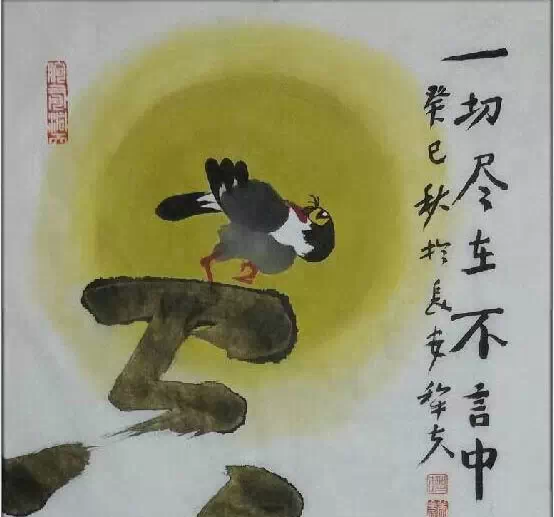 一切尽在不言中
癸巳秋於长安犂夫